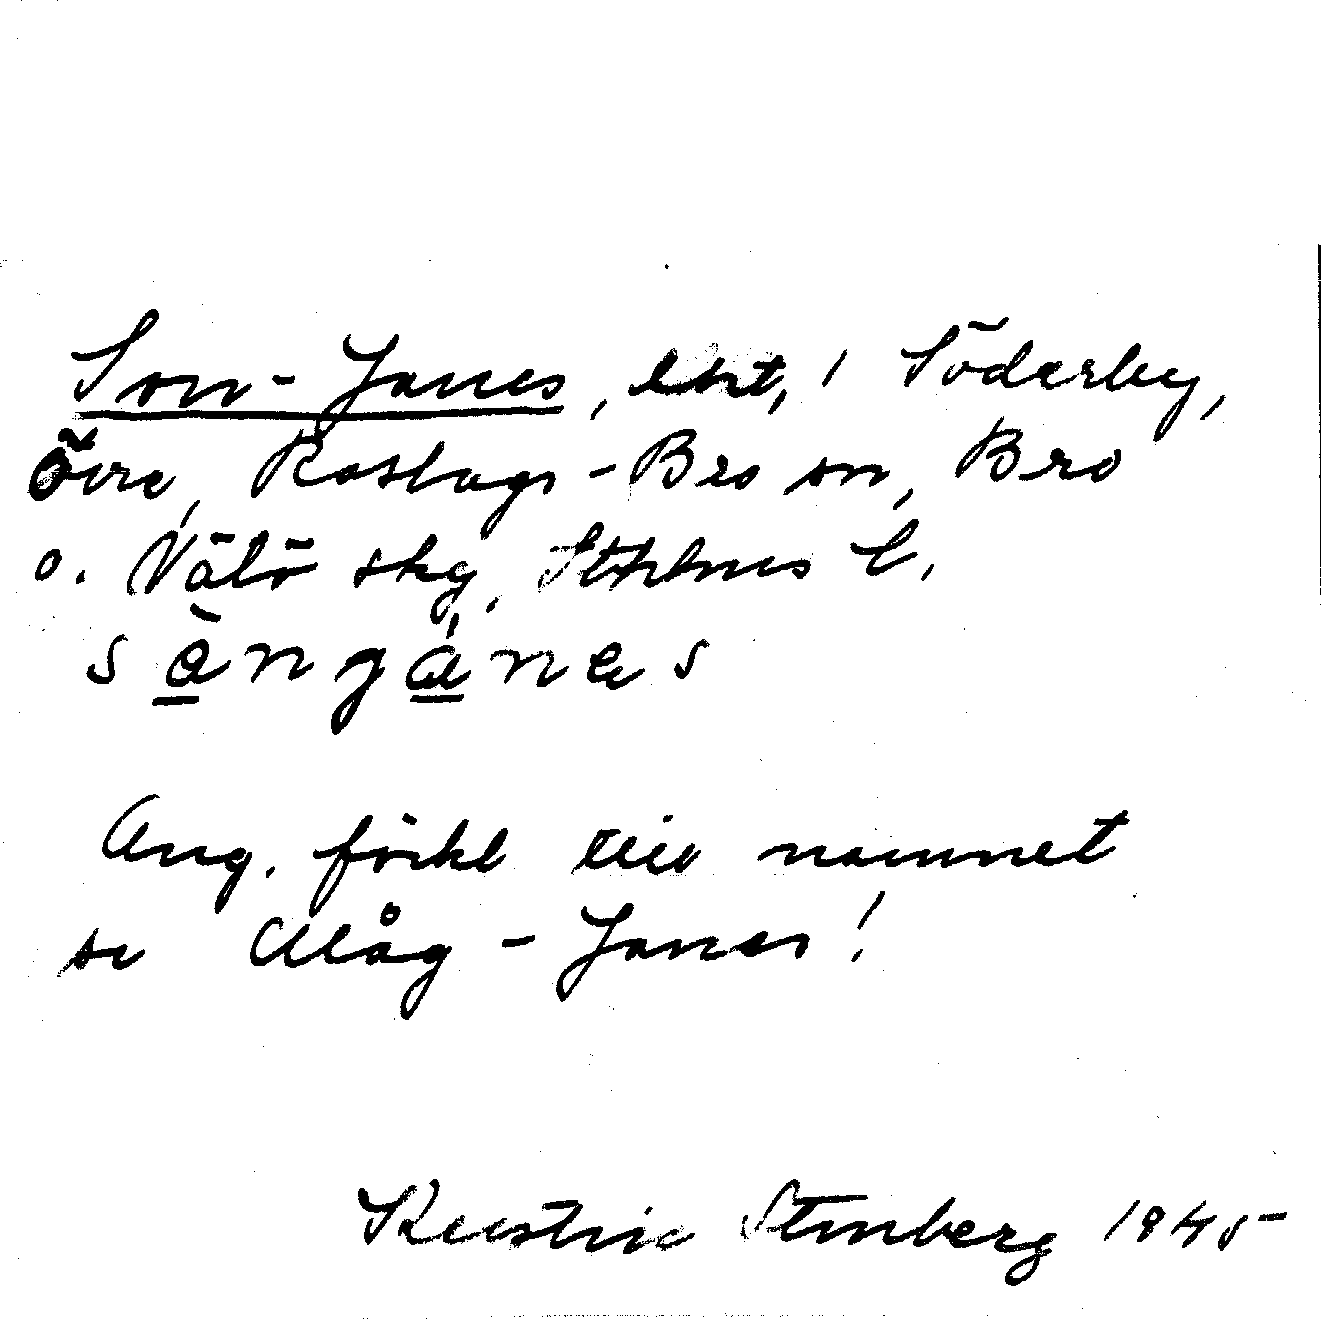 Son-Janes, lht, i Söderby,
Övre, Roslags-Bro sn, Bro
o. Vätö skg, Sthlms l.
sång̀ánes
Ang. förkl till namnet
se Alåg-Janes!
Kerstin Stenberg 1945